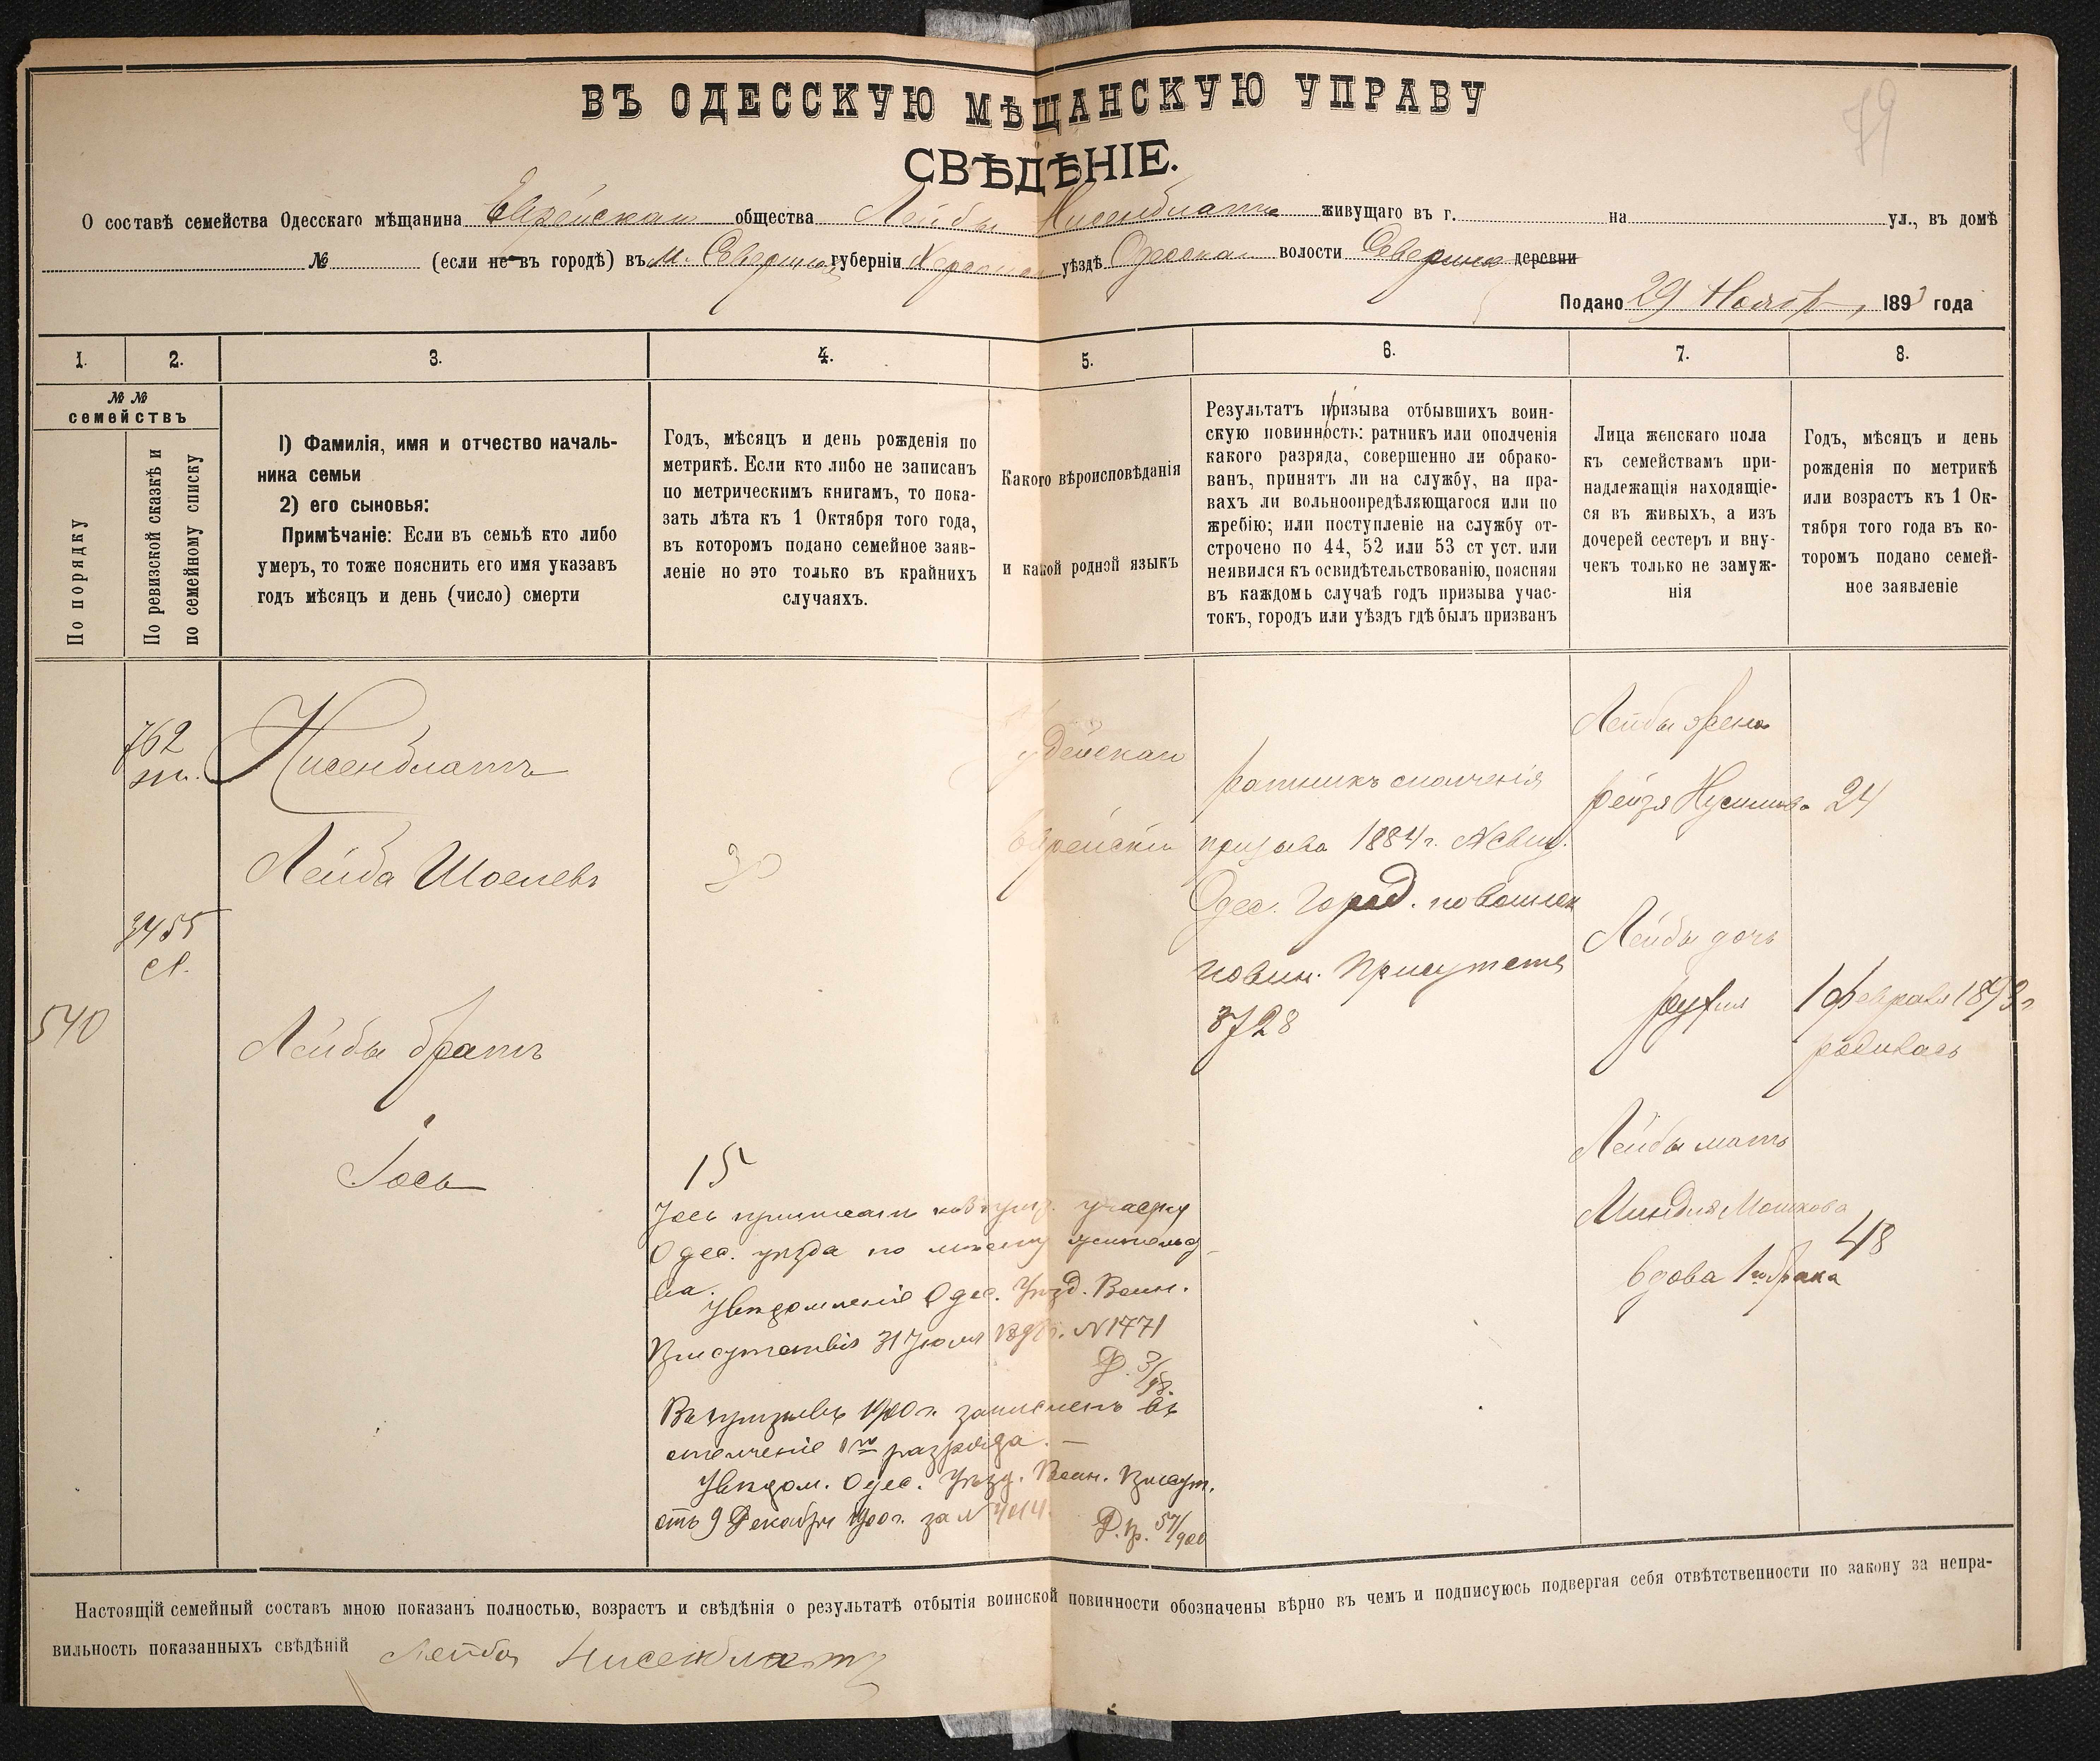 79
ВЪ ОДЕССКУЮ МѢЩАНСКУЮ УПРАВУ
СВѢДѢНІЕ.
О составѣ семейства Одесскаго мѣщанина Еврейскаго общества Лейбы Нисенблата живущаго въ г. на ул., въ домѣ
№ (если не въ городѣ) въ м. губерніи уѣздѣ волости деревни
Подано 29 Ноября, 1893 года
1.
2.
3.
4.
5.
6.
7.
8.
№ №
семействъ
По порядку
По ревизской сказкѣ и
по семейному списку
1) Фамилія, имя и отчество началь-
ника семьи
2) его сыновья:
Примѣчаніе: Если въ семьѣ кто либо
умеръ, то тоже пояснить его имя указавъ
годъ мѣсяцъ и день (число) смерти
Годъ, мѣсяцъ и день рожденія по
метрикѣ. Если кто либо не записанъ
по метрическимъ книгамъ, то пока-
зать лѣта къ 1 Октября того года,
въ которомъ подано семейное заяв-
леніе но это только въ крайнихъ
случаяхъ.
Какого вѣроисповѣданія
и какой родной языкъ
Результатъ призыва отбывшихъ воин-
скую повинность: ратникъ или ополченія
какого разряда, совершенно ли обрако-
ванъ, принятъ ли на службу, на пра-
вахъ ли вольноопредѣляющагося или по
жребію; или поступленіе на службу от-
строчено по 44, 52 или 53 ст уст. или
неявился къ освидѣтельствованію, поясняя
въ каждомъ случаѣ годъ призыва учас-
токъ, городъ или уѣздъ гдѣ былъ призванъ
Лица женскаго пола
къ семействамъ при-
надлежащія находящіе-
ся въ живыхъ, а изъ
дочерей сестеръ и вну-
чекъ только не замуж-
нія
Годъ, мѣсяцъ и день
рожденія по метрикѣ
или возрастъ къ 1 Ок-
тября того года въ ко-
торомъ подано семей-
ное заявленіе
762
Нисенблатъ
Лейба Шоелевъ
30
Еврейскій
ратникъ ополченія
призыва 1884 г.
Одес. Город. по воинск
повин. Присутств
3728
Лейбы жена
Рейзя 24
3455
540
Лейбы братъ
Іось
15
Лейбы дочь
1 февраля 1893 г
родилась
Лейбы мать
Миндля Мошкова
48
вдова 1го брака
Іось приписанъ къ участку
Одес. уѣзда по мѣсту жительст-
ва.
Увѣдомленіе Одес. Уѣзд. Воин.
Присутствія 31 Іюля N 1771
Въ призывъ 1900 г. зачисленъ въ
ополченіе 1го разряда.
Увѣдом. Одес. Уѣзд. Воин. Присут.
отъ 9 Декабря 1900 г. за N
Д. 57/900
Настоящій семейный составъ мною показанъ полностью, возрастъ и свѣдѣнія о результатѣ отбытія воинской повинности обозначены вѣрно въ чемъ и подписуюсь подвергая себя отвѣтственности по закону за непра-
вильность показанныхъ свѣдѣній Лейба Нисенблатъ